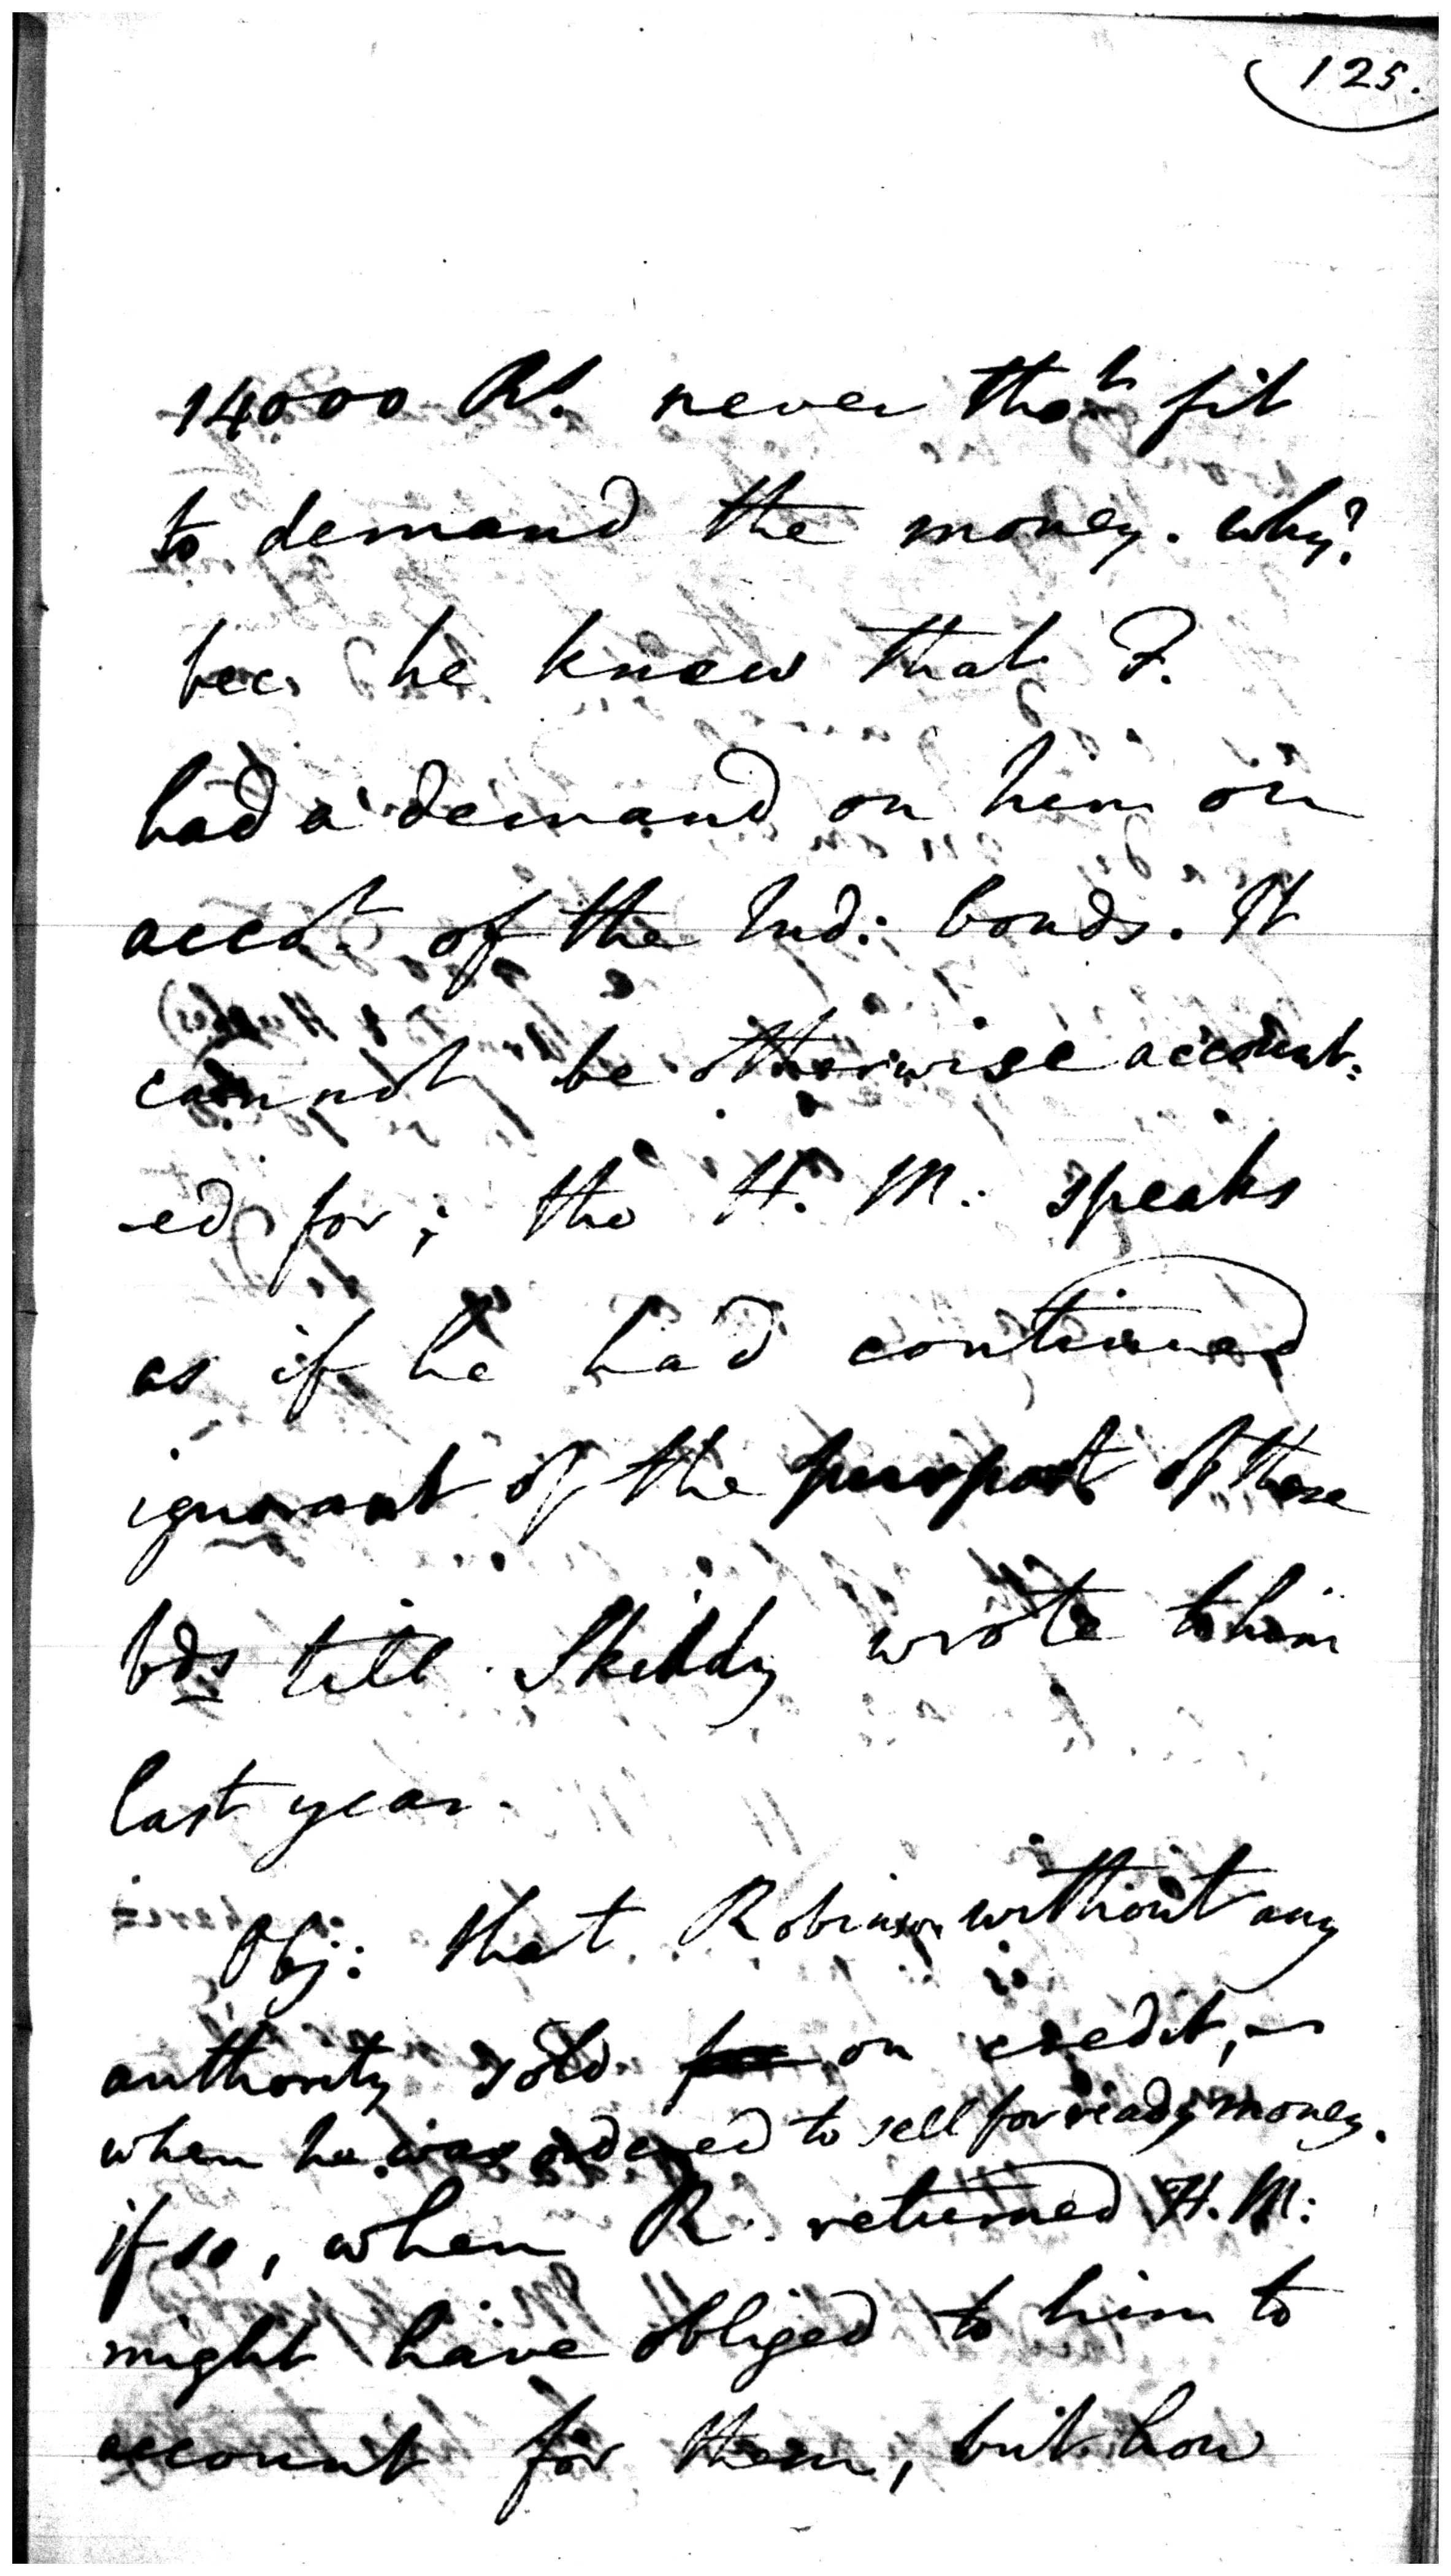 125.
14000 Rs. never thot. fit
to demand the money. why?
bec. he knew that F.
had a demand on him on
accot. of the Ind: bonds. It
cannot be otherwise account=
-ed for; tho H. M: speaks
as if he had continued
ignorant of the purport of these
bds till Skiddy wrote to him
last year.
Obj: that Robinson without any
authority sold on credit,
when he was ordered to sell for ready money.
if so, when R. returned H. M:
might have obliged to him to
account for them, but how